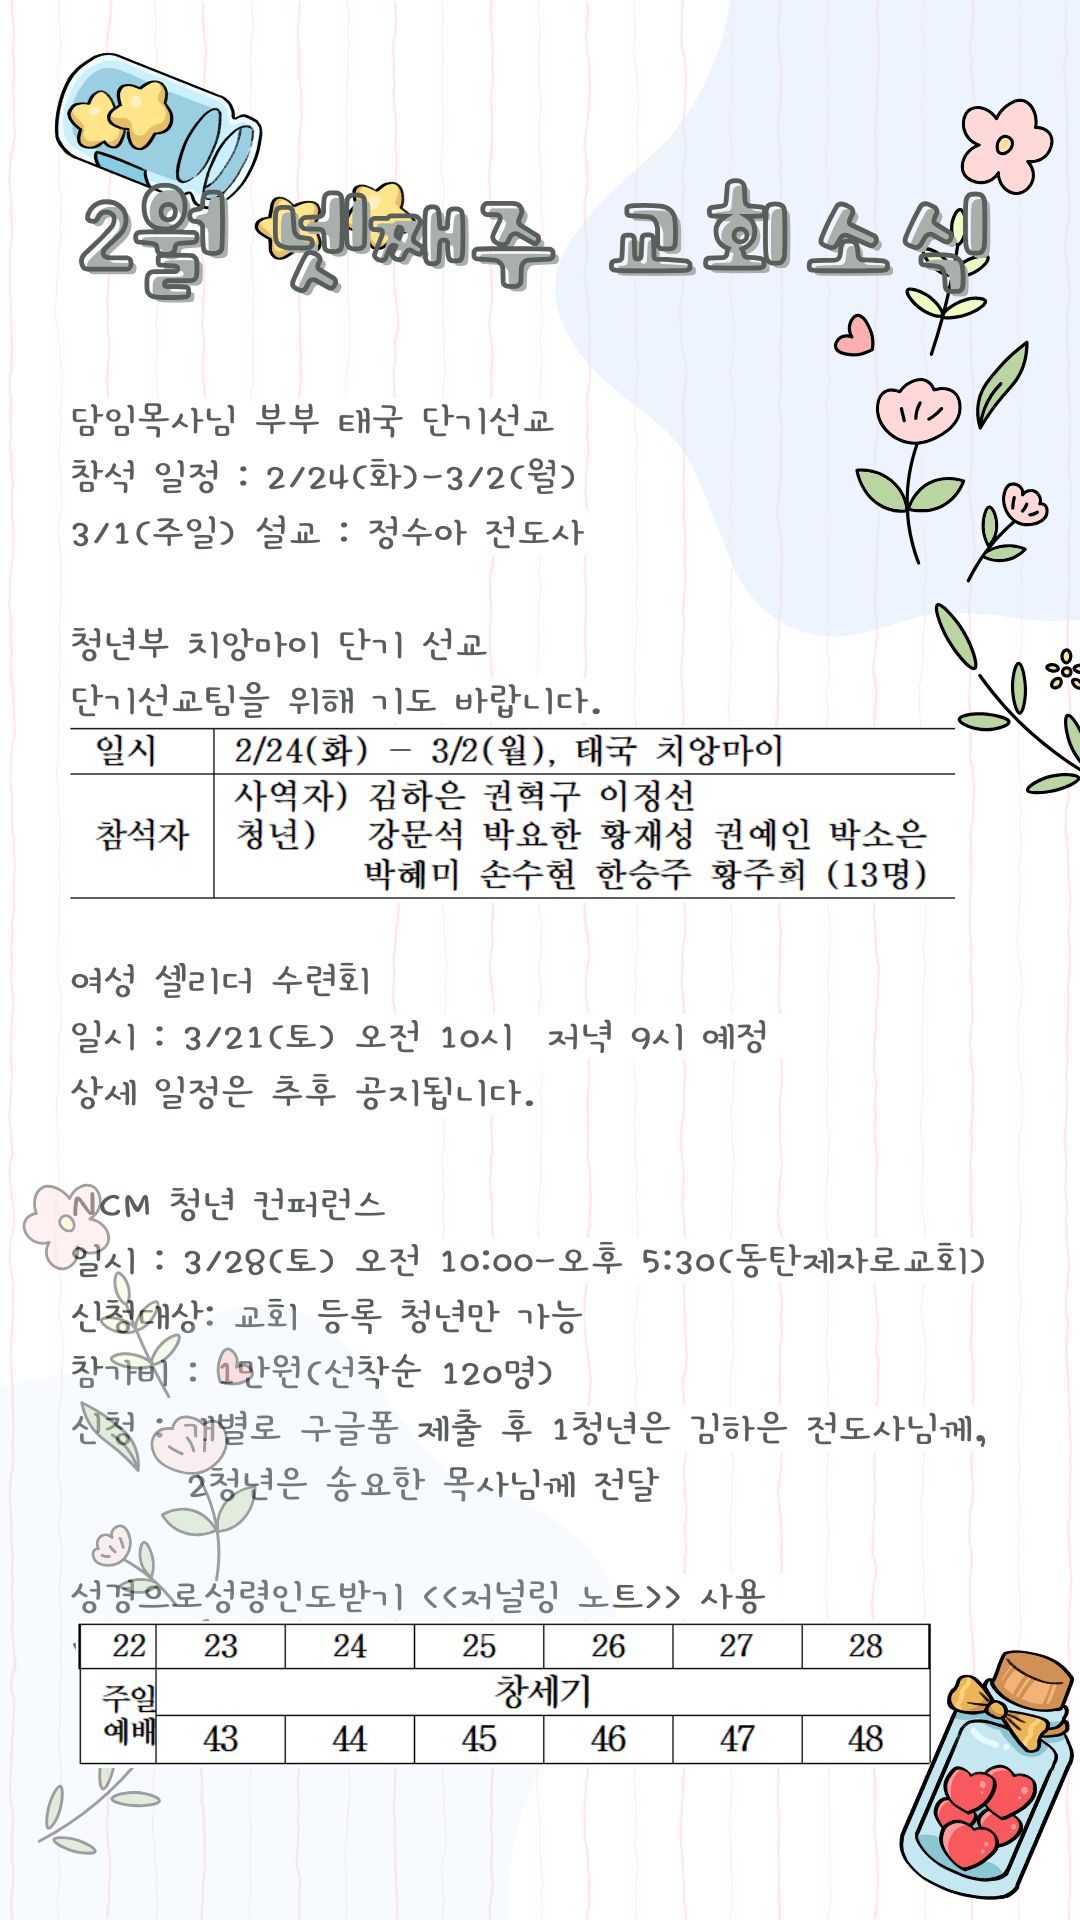 2월 넷째주 교회소식
담임목사님 부부 태국 단기선교
참석 일정 : 2/24(화)-3/2(월)
3/1(주일) 설교 : 정수아 전도사
청년부 치앙마이 단기 선교
단기선교팀을 위해 기도 바랍니다.
일시 2/24(화) - 3/2(월), 태국 치앙마이
사역자) 김하은 권혁구 이정선
참석자 청년) 강문석 박요한 황재성 권예인 박소은
박혜미 손수현 한승주 황주희 (13명)
여성 셀리더 수련회
일시 : 3/21(토) 오전 10시 저녁 9시 예정
상세 일정은 추후 공지됩니다.
NCM 청년 컨퍼런스
일시 : 3/28(토) 오전 10:00-오후 5:30(동탄제자로교회)
신청대상: 교회 등록 청년만 가능
참가비 : 1만원(선착순 120명)
신청 : 개별로 구글폼 제출 후 1청년은 김하은 전도사님께,
2청년은 송요한 목사님께 전달
성경으로성령인도받기 <<저널링 노트>> 사용
22 23 24 25 26 27 28
주일 창세기
예배 43 44 45 46 47 48